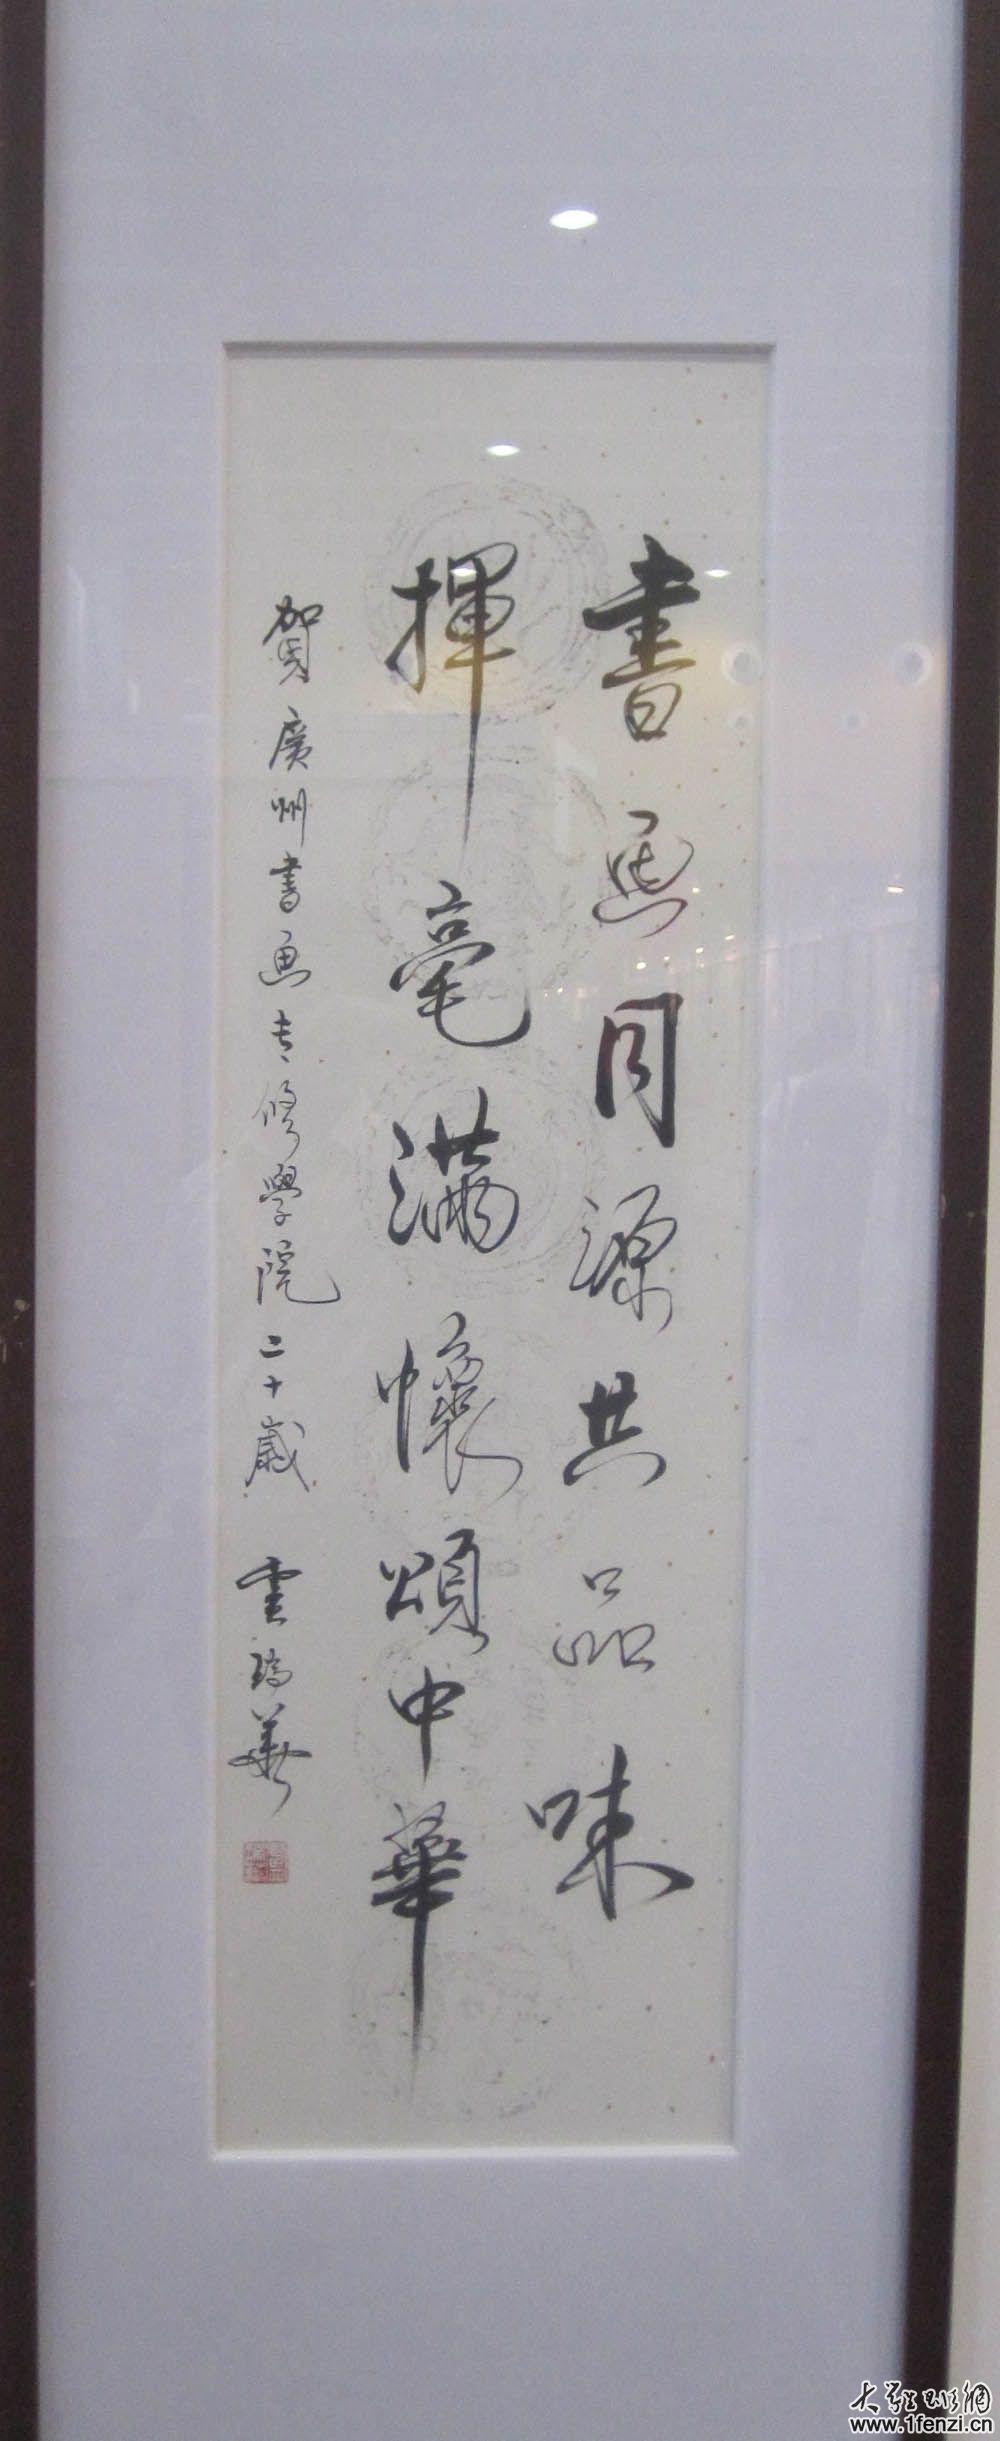 書画同源共品味
揮毫滿懷頌中華
賀廣州書画专修學院二十歲
雲瑞華
www.1fenzi.cn